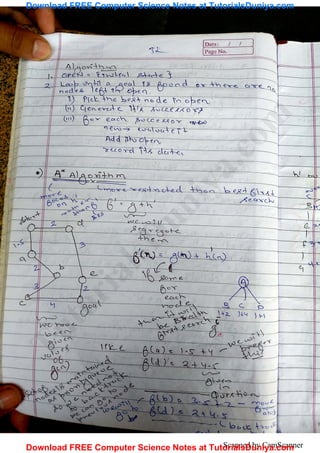 Download FREE Computer Science Notes at TutorialsDuniya.com
92
Date: / /
Page No.
Algorithm
1. open = {initial state}
2. Loop until a goal is found or there are no
nodes left in open
i) Pick the best node in open
(ii) Generate its successors
(iii) for each successor
new → evaluate it
Add it to open
record its data
A* Algorithm
more restricted than best first
search
f' = g + h'
we will
segregate
them
start
2
d
1.5
3
a
2
b
e
3
2
c
4
goal
f(n) = g(n) + h(n)
if same
for
each
node
then it will
be Breadth
first search
A
B C D
1+2 1+4 1+1
we have
been
given
values
of
g(n)
like
f(a) = 1.5 + 4
f(d) = 2 + 4.5
we will
prefer
this
Given
in
Question
f(b) = 3.5 + 2
f(d) = 2 + 4.5
move
back track
Scanned by CamScanner
Download FREE Computer Science Notes at TutorialsDuniya.com